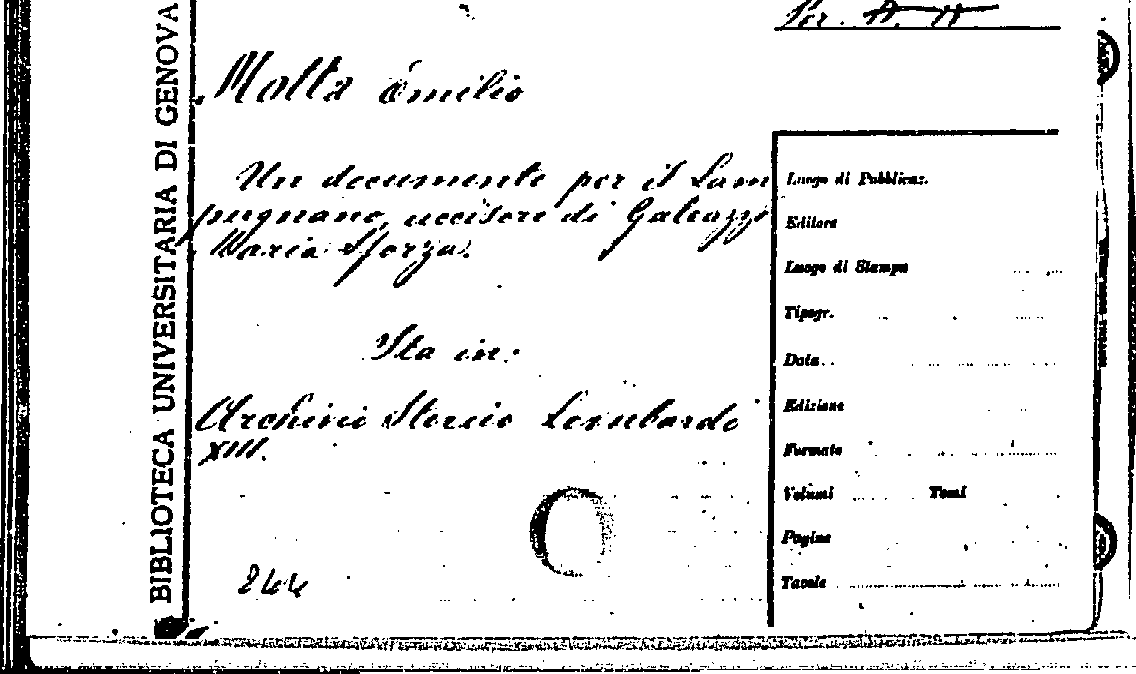 Per. A. 11
Motta Emilio
Un documento per il Lam
pugnano, uccisore di Galeazzo
Maria Sforza.
Sta in:
Archivio Storico Lombardo
XIII.
BIBLIOTECA UNIVERSITARIA DI GENOVA
Luogo di Pubblicaz.
Editore
Luogo di Stampa
Tipogr.
Data
Edizione
Formato
Volumi Tomi
Pagine
Tavole